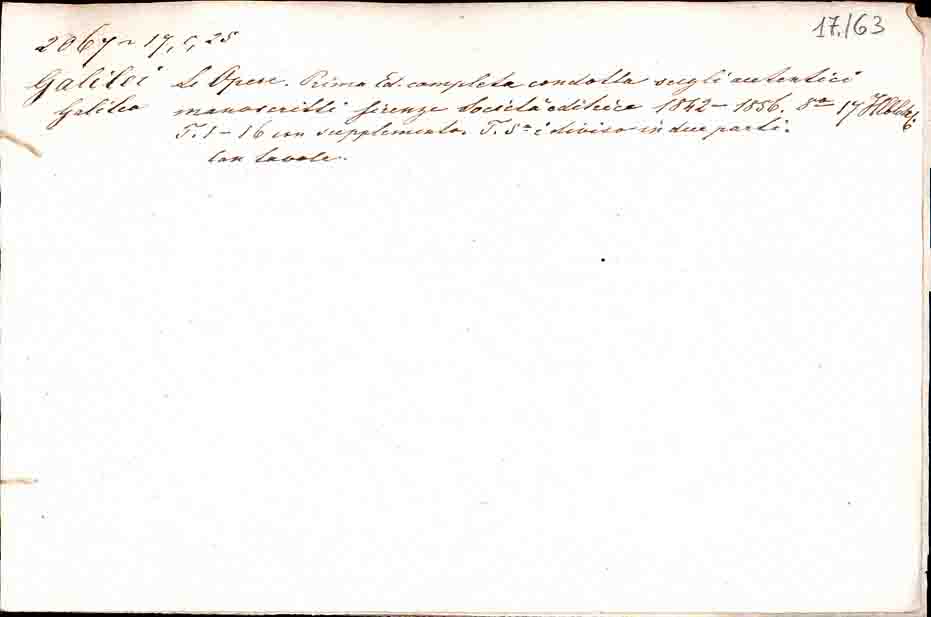 17./63
2067 ~ 17, c, 25
Galilei Le Opere. Prima Ed. completa condotta sugli autentici
Galileo manoscritti Firenze Società editrice 1842 – 1856. 8° 17
T. 1 – 16 con supplemento. T. 5° è diviso in due parti.
Con tavole.